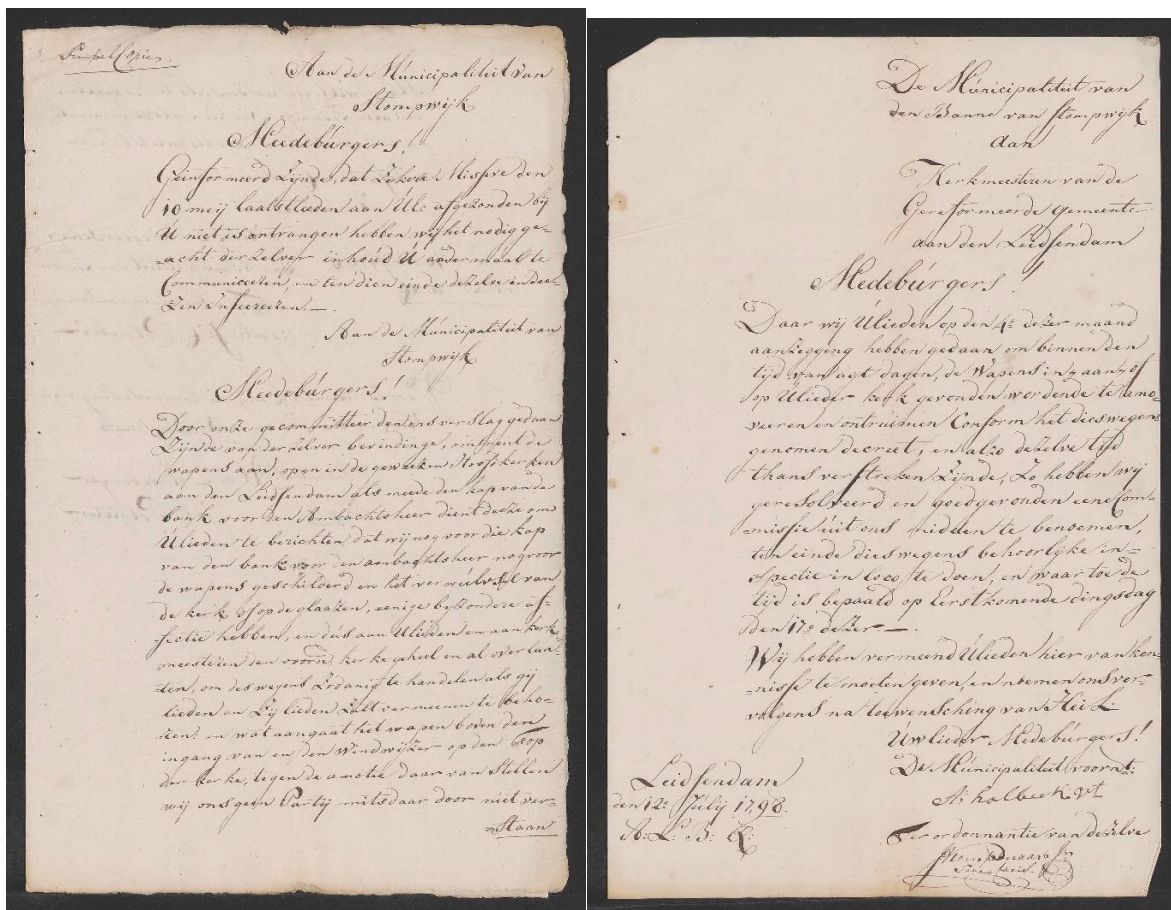 Simpel Copie.
Aan de Municipaliteit van
Stompwijk
Meedeburgers!
Geinformeerd Zijnde, dat Zekere Missive den
10 meij laatstleeden aan Ul: afgezonden bij
U niet is ontvangen hebben wij het nodig ge-
-acht derzelver inhoud U andermaal te
Communiceeren, en ten dien einde dezelve in dee-
-zen Insereeren. —
Aan de Municipaliteit van
Stompwijk
Meedeburgers!
Door onze gecommitteerdens verslag gedaan
Zijnde van derzelver bevindinge, omtrent de
wapens aan, op en in de geweezen Hoofdkerken
aan den Leidsendam als meede den kap van de
bank voor den Ambachtsheer dient deeze om
Ulieden te berichten dat wij nog voor die kap
van den bank voor den ambachtsheer nog voor
de wapens geschilderd en het verwulvsel van
de kerk of op de glaazen, eenige byzondere af-
-fectie hebben, en dus aan Ulieden en aan kerk
meesteren den voorn: kerke geheel en al over laa-
-ten, om deswegens Zodanig te handelen als gij
lieden en Zij lieden Zult vermeenen te beho-
-ren, en wat aangaat het wapen boven den
ingang van en den windwijzer op den top
der kerke, tegen de amotie daar van Stellen
wij ons geen Partij mits daar door niet ver-
-Staan
De Municipaliteit van
den Banne van Stompwijk
aan
Kerkmeesteren van de
Gereformeerde Gemeente
aan den Leidsendam
Medeburgers!
Daar wij Ulieden op den 4e dezer maand
aanzegging hebben gedaan om binnen den
tijd van agt dagen, de Wapens in, aan, of
op Ulieder kerk gevonden wordende te amo-
veeren en ontruimen Conform het dieswegens
genomen decreet, en alzo dezelve tijd
thans verstreken Zijnde, Zo hebben wij
geresolveerd en goedgevonden eene Com-
missie uit ons midden te benoemen,
ten einde dieswegens behoorlijke in-
-spectie in loco te doen, en waar toe de
tijd is bepaald op Eerstkomende dingsdag
den 17e dezer. —
Wij hebben vermeend Ulieden hier van ken-
-nisse te moeten geven, en noemen ons ver-
volgens na toewensching van Heil:
Uwlieder Medeburgers!
De Municipaliteit voornt.
A: kalbeek Vt
Ter ordonnantie van dezelve
Secretaris.
Leidsendam
den 12e Julij 1798.
A: L: B: R: